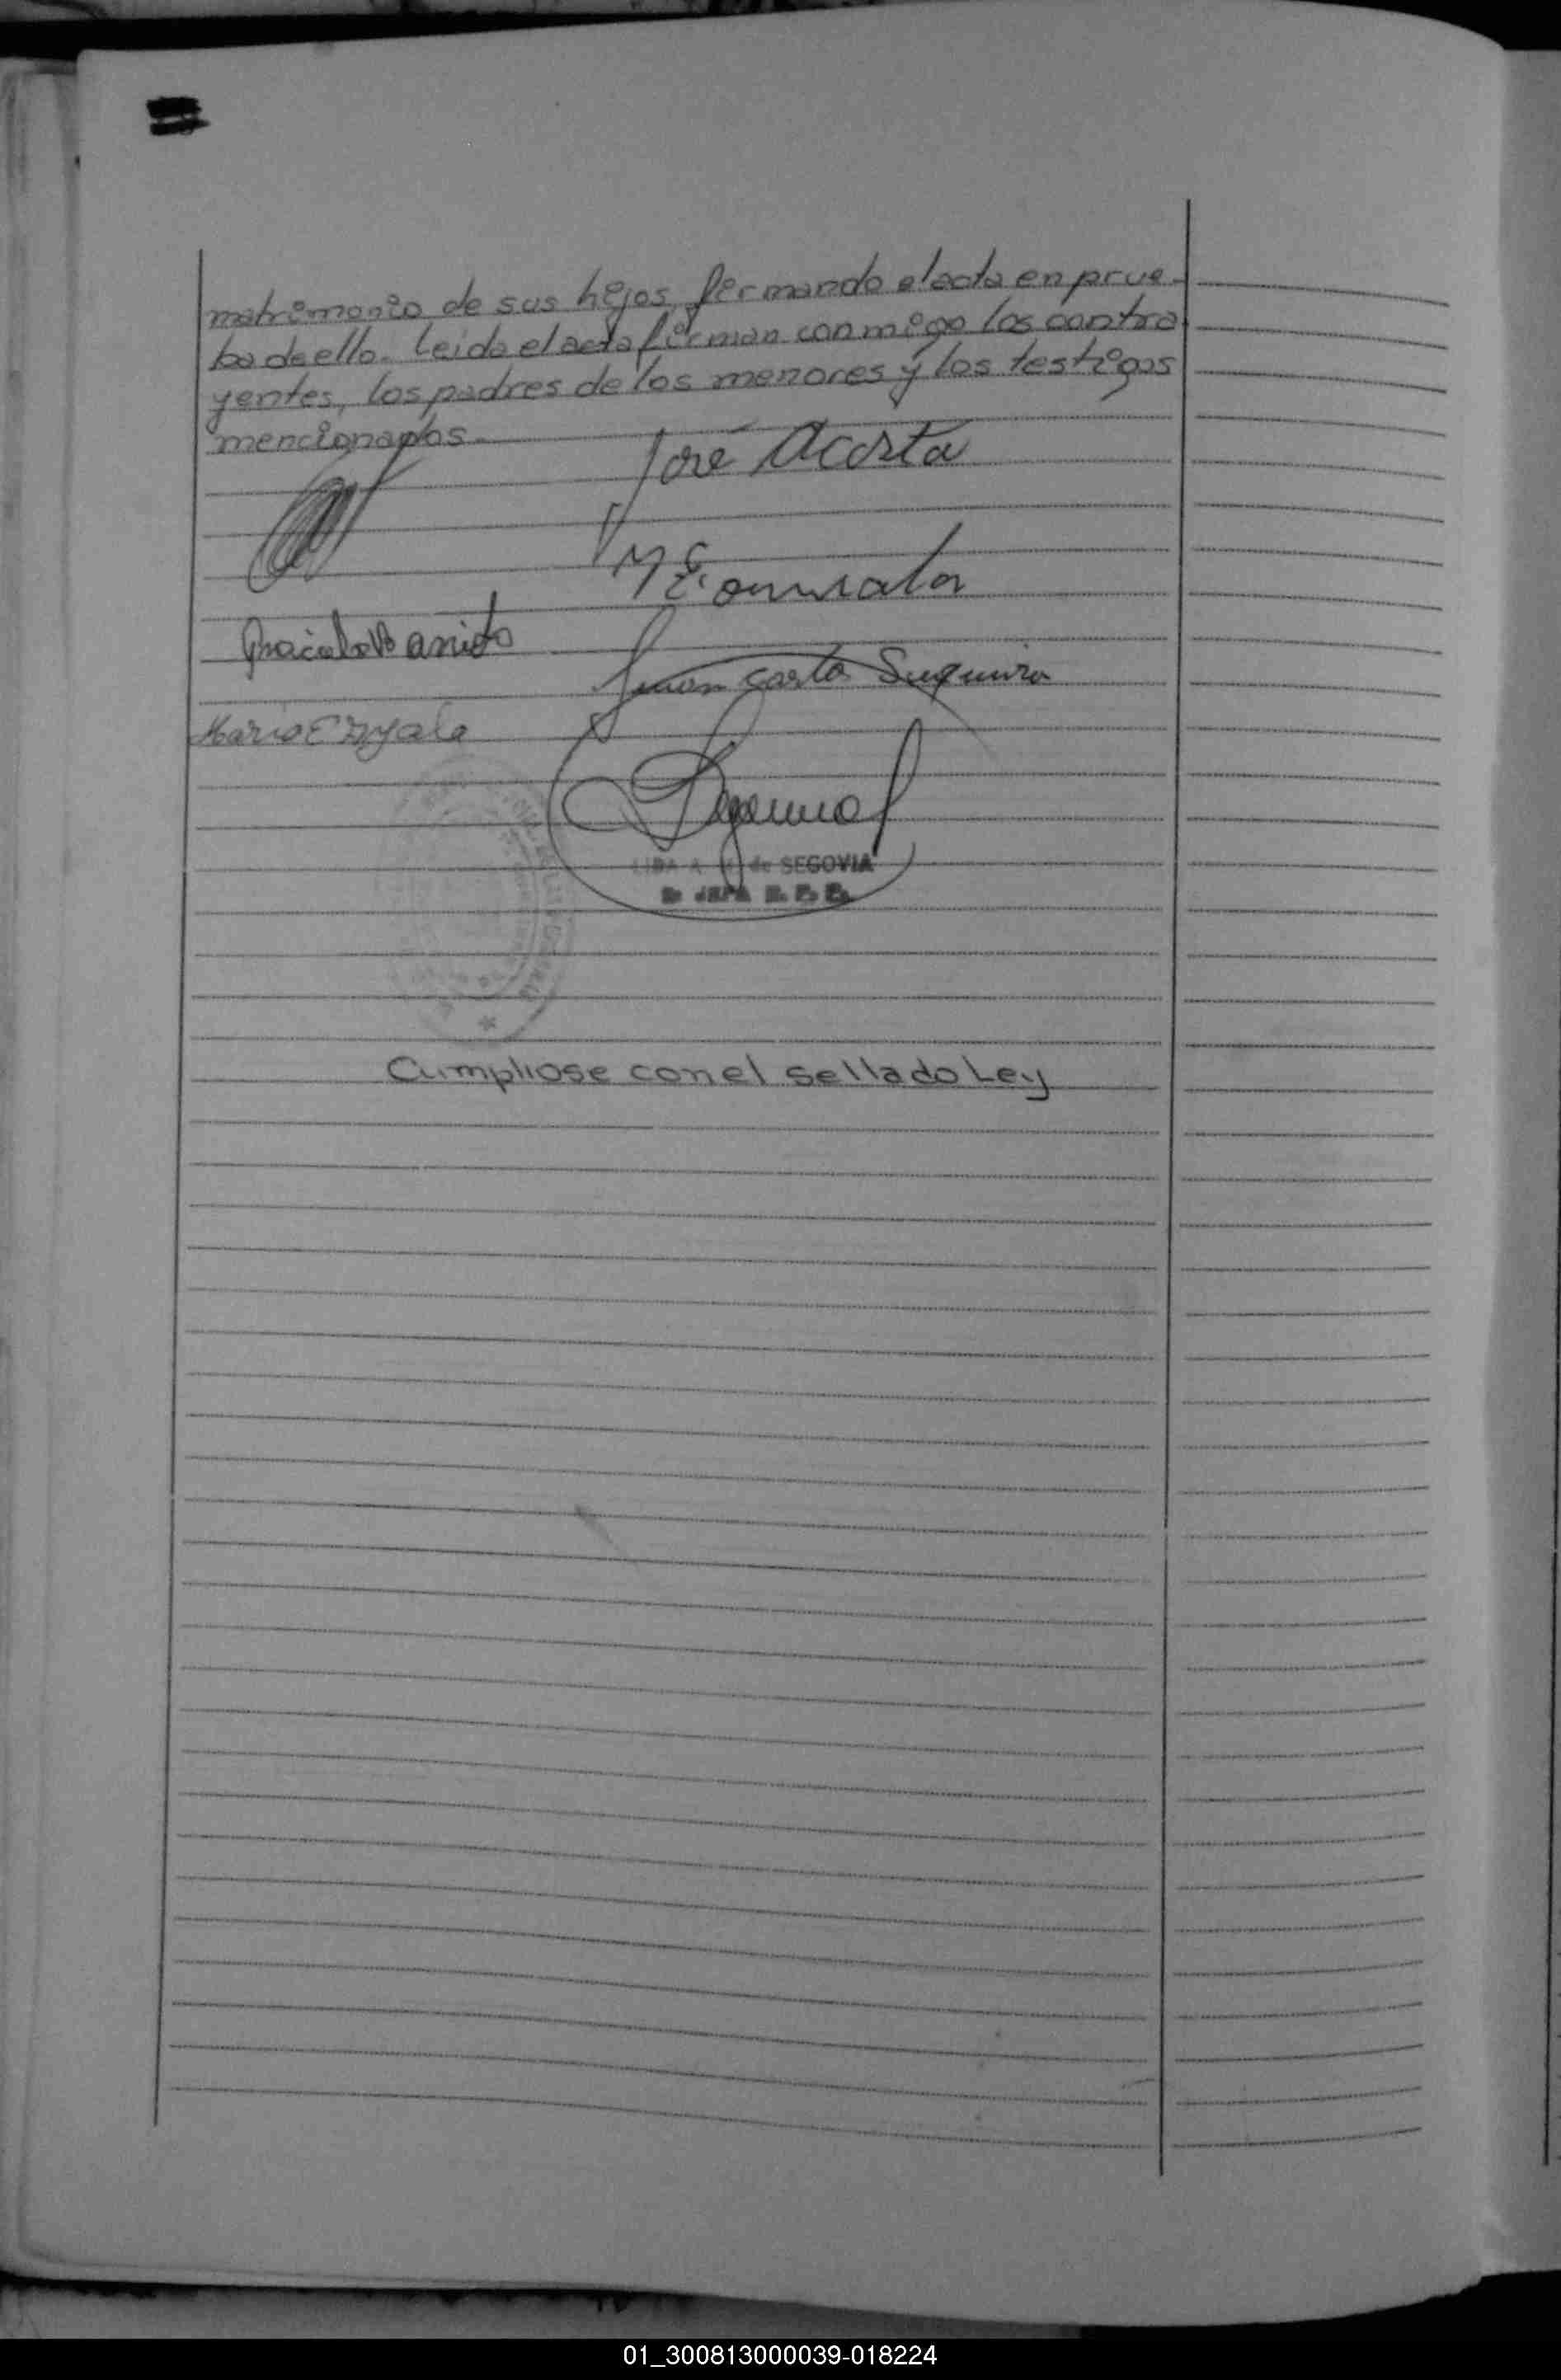 matrimonio de sus hijos, firmando el acta en prue-
ba de ello.- Leida el acta firman conmigo los contra
yentes, los padres de los menores y los testigos
mencionados.-
José Acosta
M E.
Graciela
Mario E Ayala
Juan Carlos
LIDA A. de SEGOVIA
JEFA
Cumpliose con el sellado Ley
01_300813000039-018224